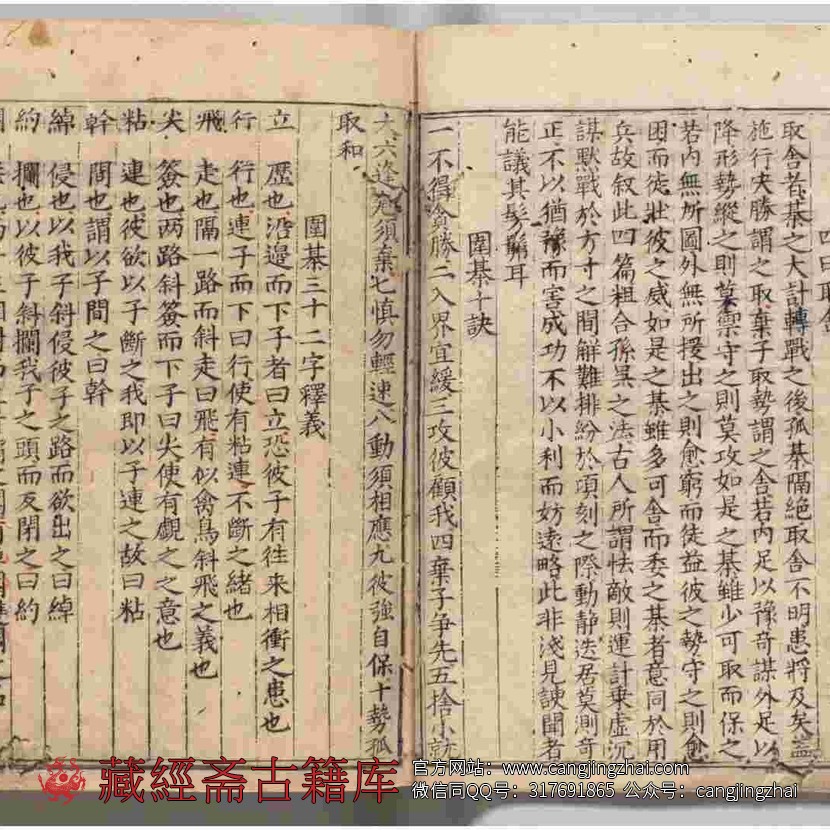 四曰取舍
取舍者棊之大計轉戰之後孤棊隔絶取舍不明患將及矣盖
施行决勝謂之取棄子取勢謂之舍若内足以豫奇謀外足以
降形勢縱之則莫禦守之則莫攻如是之棊雖少可取而保之
若内無所圖外無所援出之則愈窮而徒益彼之勢守之則愈
困而徒壯彼之威如是之棊雖多可舍而委之棊者意同於用
兵故叙此四篇粗合孫吴之法古人所謂怯敵則運計乗虚沉
謀默戰於方寸之間解難排紛於項刻之際動静迭居莫測奇
正不以猶豫而害成功不以小利而妨逺略此非淺見諛聞者
能議其髣髴耳
圍棊十訣
一不得貪勝二入界宜緩三攻彼顧我四棄子爭先五捨小就
大六逢危須棄七慎勿輕速八動須相應九彼強自保十勢孤
取和
圍棊三十二字釋義
立 壓也沿邉而下子者曰立恐彼子有往来相衝之患也
行 行也連子而下曰行使有粘連不斷之緒也
飛 走也隔一路而斜走曰飛有似禽鳥斜飛之義也
尖 簽也两路斜簽而下子曰尖使有覷之之意也
粘 連也彼欲以子斷之我即以子連之故曰粘
幹 間也謂以子間之曰幹
綽 侵也以我子斜侵彼子之路而欲出之曰綽
約 攔也以彼子斜攔我子之頭而反閉之曰約
藏經斋古籍库
官方网站：www.cangjingzhai.com
微信同QQ号：317691865 公众号：cangjingzhai